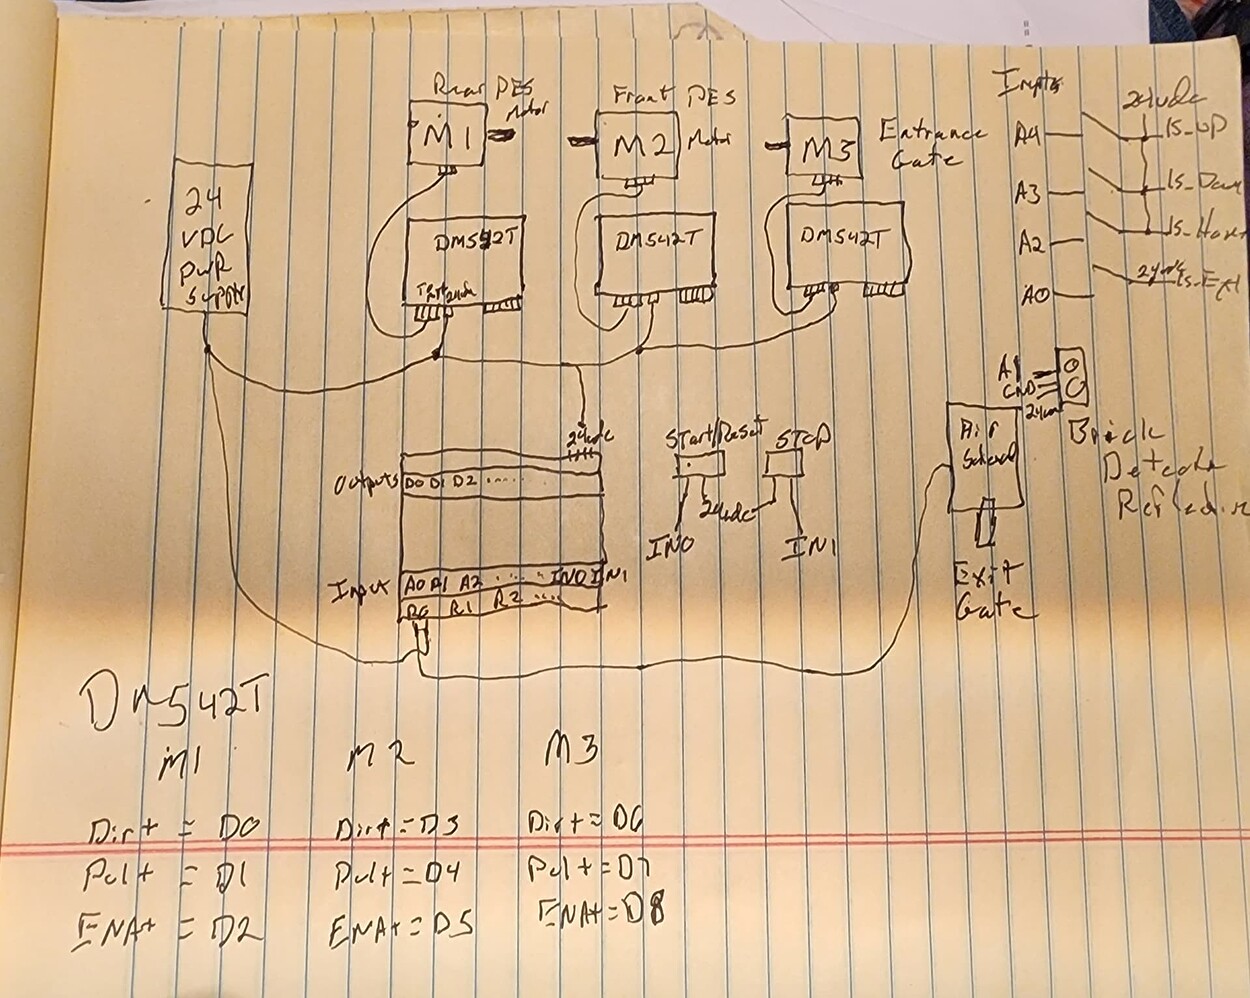 Rear PES
Motor
M1
Front PES
Motor
M2
M3
Entrance
Gate
24
VDC
PWR
Supply
DM542T
24vdc
DM542T
DM542T
Inputs
24vdc
A4
ls_UP
A3
ls_Down
A2
ls_Home
A0
24vdc
ls_Ext
A1
GND
24vdc
Brick
Detector
Reflective
Air
Exit
Gate
24vdc
Outputs D0 D1 D2 ......
Input A0 A1 A2 ..... IN0 IN1
R0 R1 R2 ....
Start/Reset
STOP
24vdc
IN0
IN1
DM542T
M1
M2
M3
Dir+ = D0
Dir+ = D3
Dir+ = D6
Pul+ = D1
Pul+ = D4
Pul+ = D7
ENA+ = D2
ENA+ = D5
ENA+ = D8